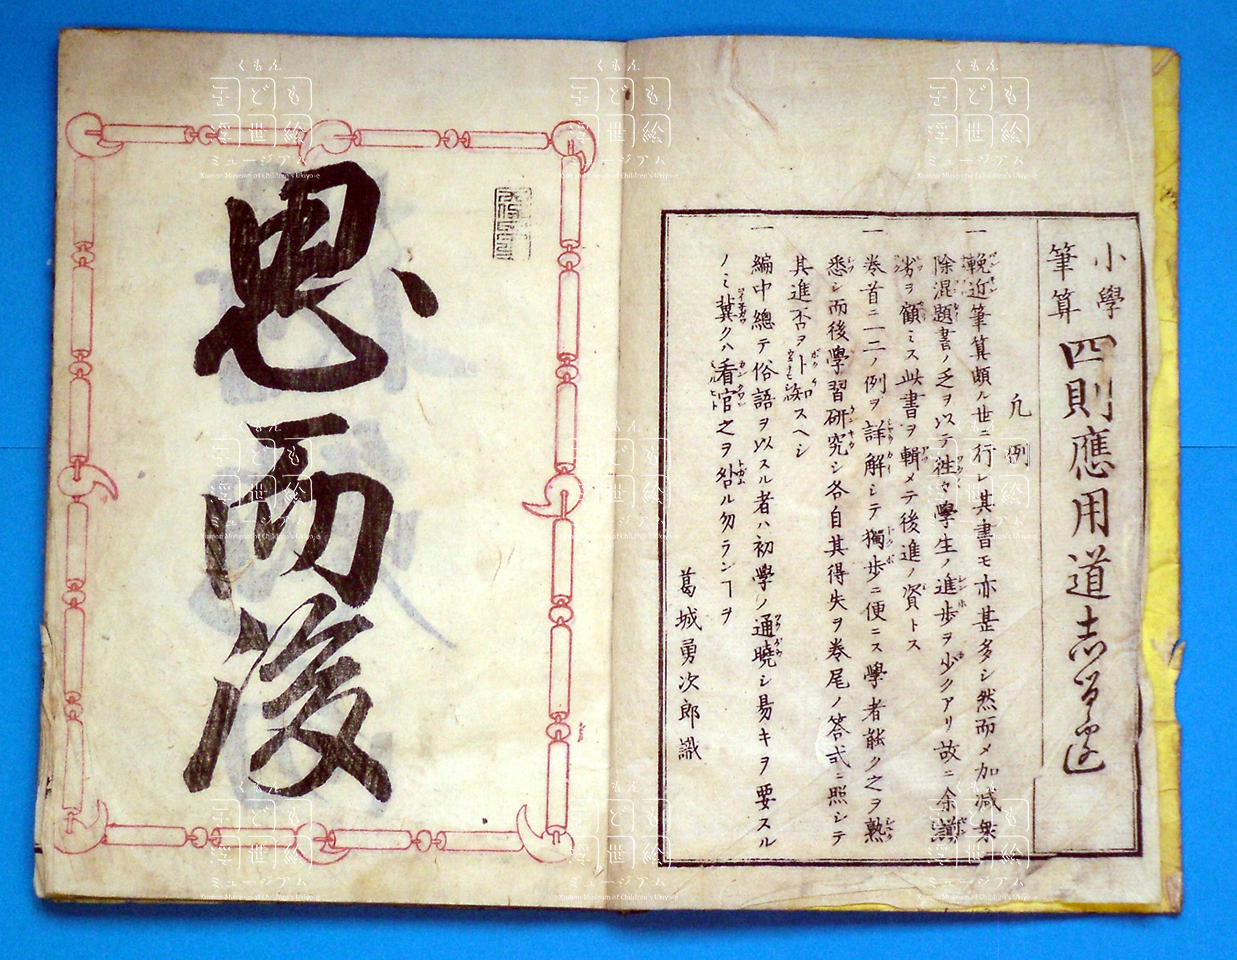 小學
筆算
四則應用道志るべ
凡例
一輓近筆算頗ル世ニ行レ其書モ亦甚多シ然而メ加減乗
除混題書ノ乏ヲ以テ徃々學生ノ進歩ヲ少クアリ故ニ余謭
劣ヲ顧ミス此書ヲ輯メテ後進ノ資トス
一巻首ニ一二ノ例ヲ詳解シテ獨歩ニ便ニス學者能ク之ヲ熟
悉シ而後學習研究シ各自其得失ヲ巻尾ノ答式ニ照シテ
其進否ヲ卜知スヘシ
一編中總テ俗語ヲ以スル者ハ初學ノ通曉シ易キヲ要スル
ノミ冀クハ看官之ヲ咎ルヿ勿ランヿヲ
葛城勇次郎識
思而後
くもん
子ども
浮世絵
ミュージアム
Kumon Museum of Children's Ukiyo-e